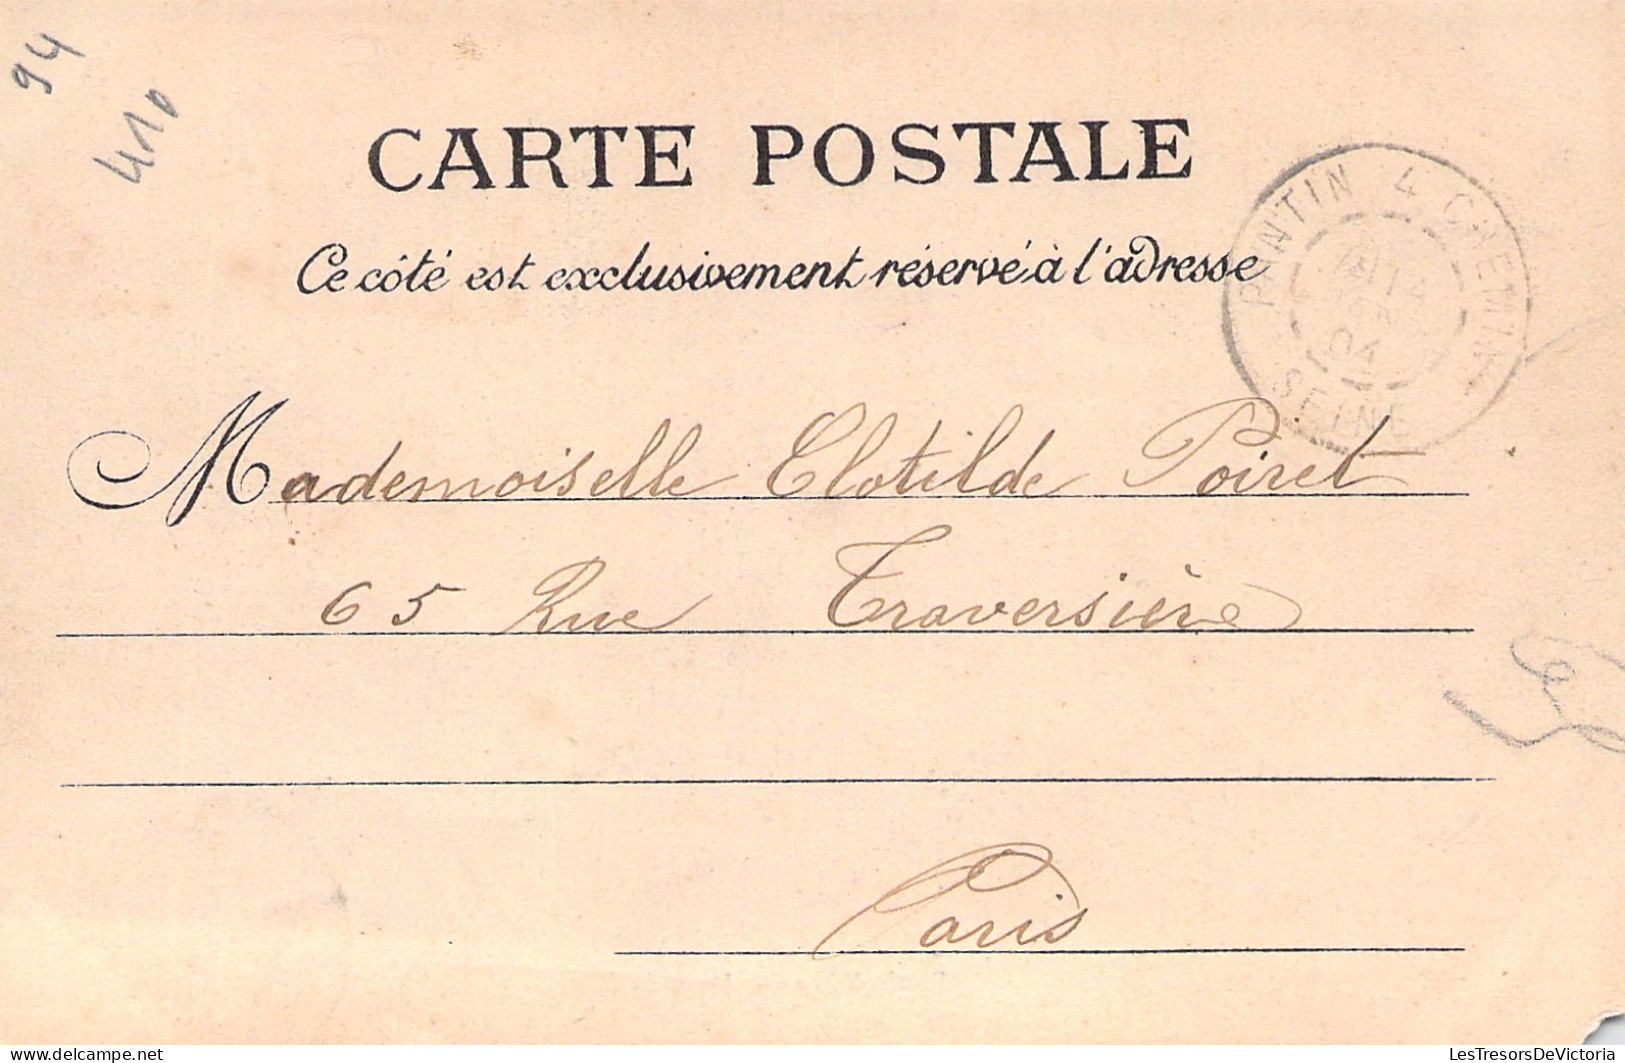 94
410
CARTE POSTALE
Ce côté est exclusivement réservé à l'adresse
PANTIN 4 CHEMINS
04
SEINE
Mademoiselle Clotilde Poiret
65 Rue Traversière
Paris
delcampe.net
LesTresorsDeVictoria